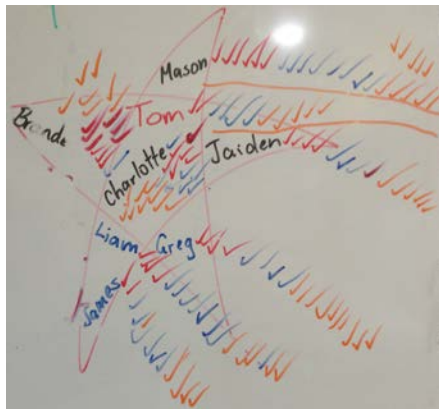 Mason
Tom
Charlotte
Jaiden
Liam
Greg
James